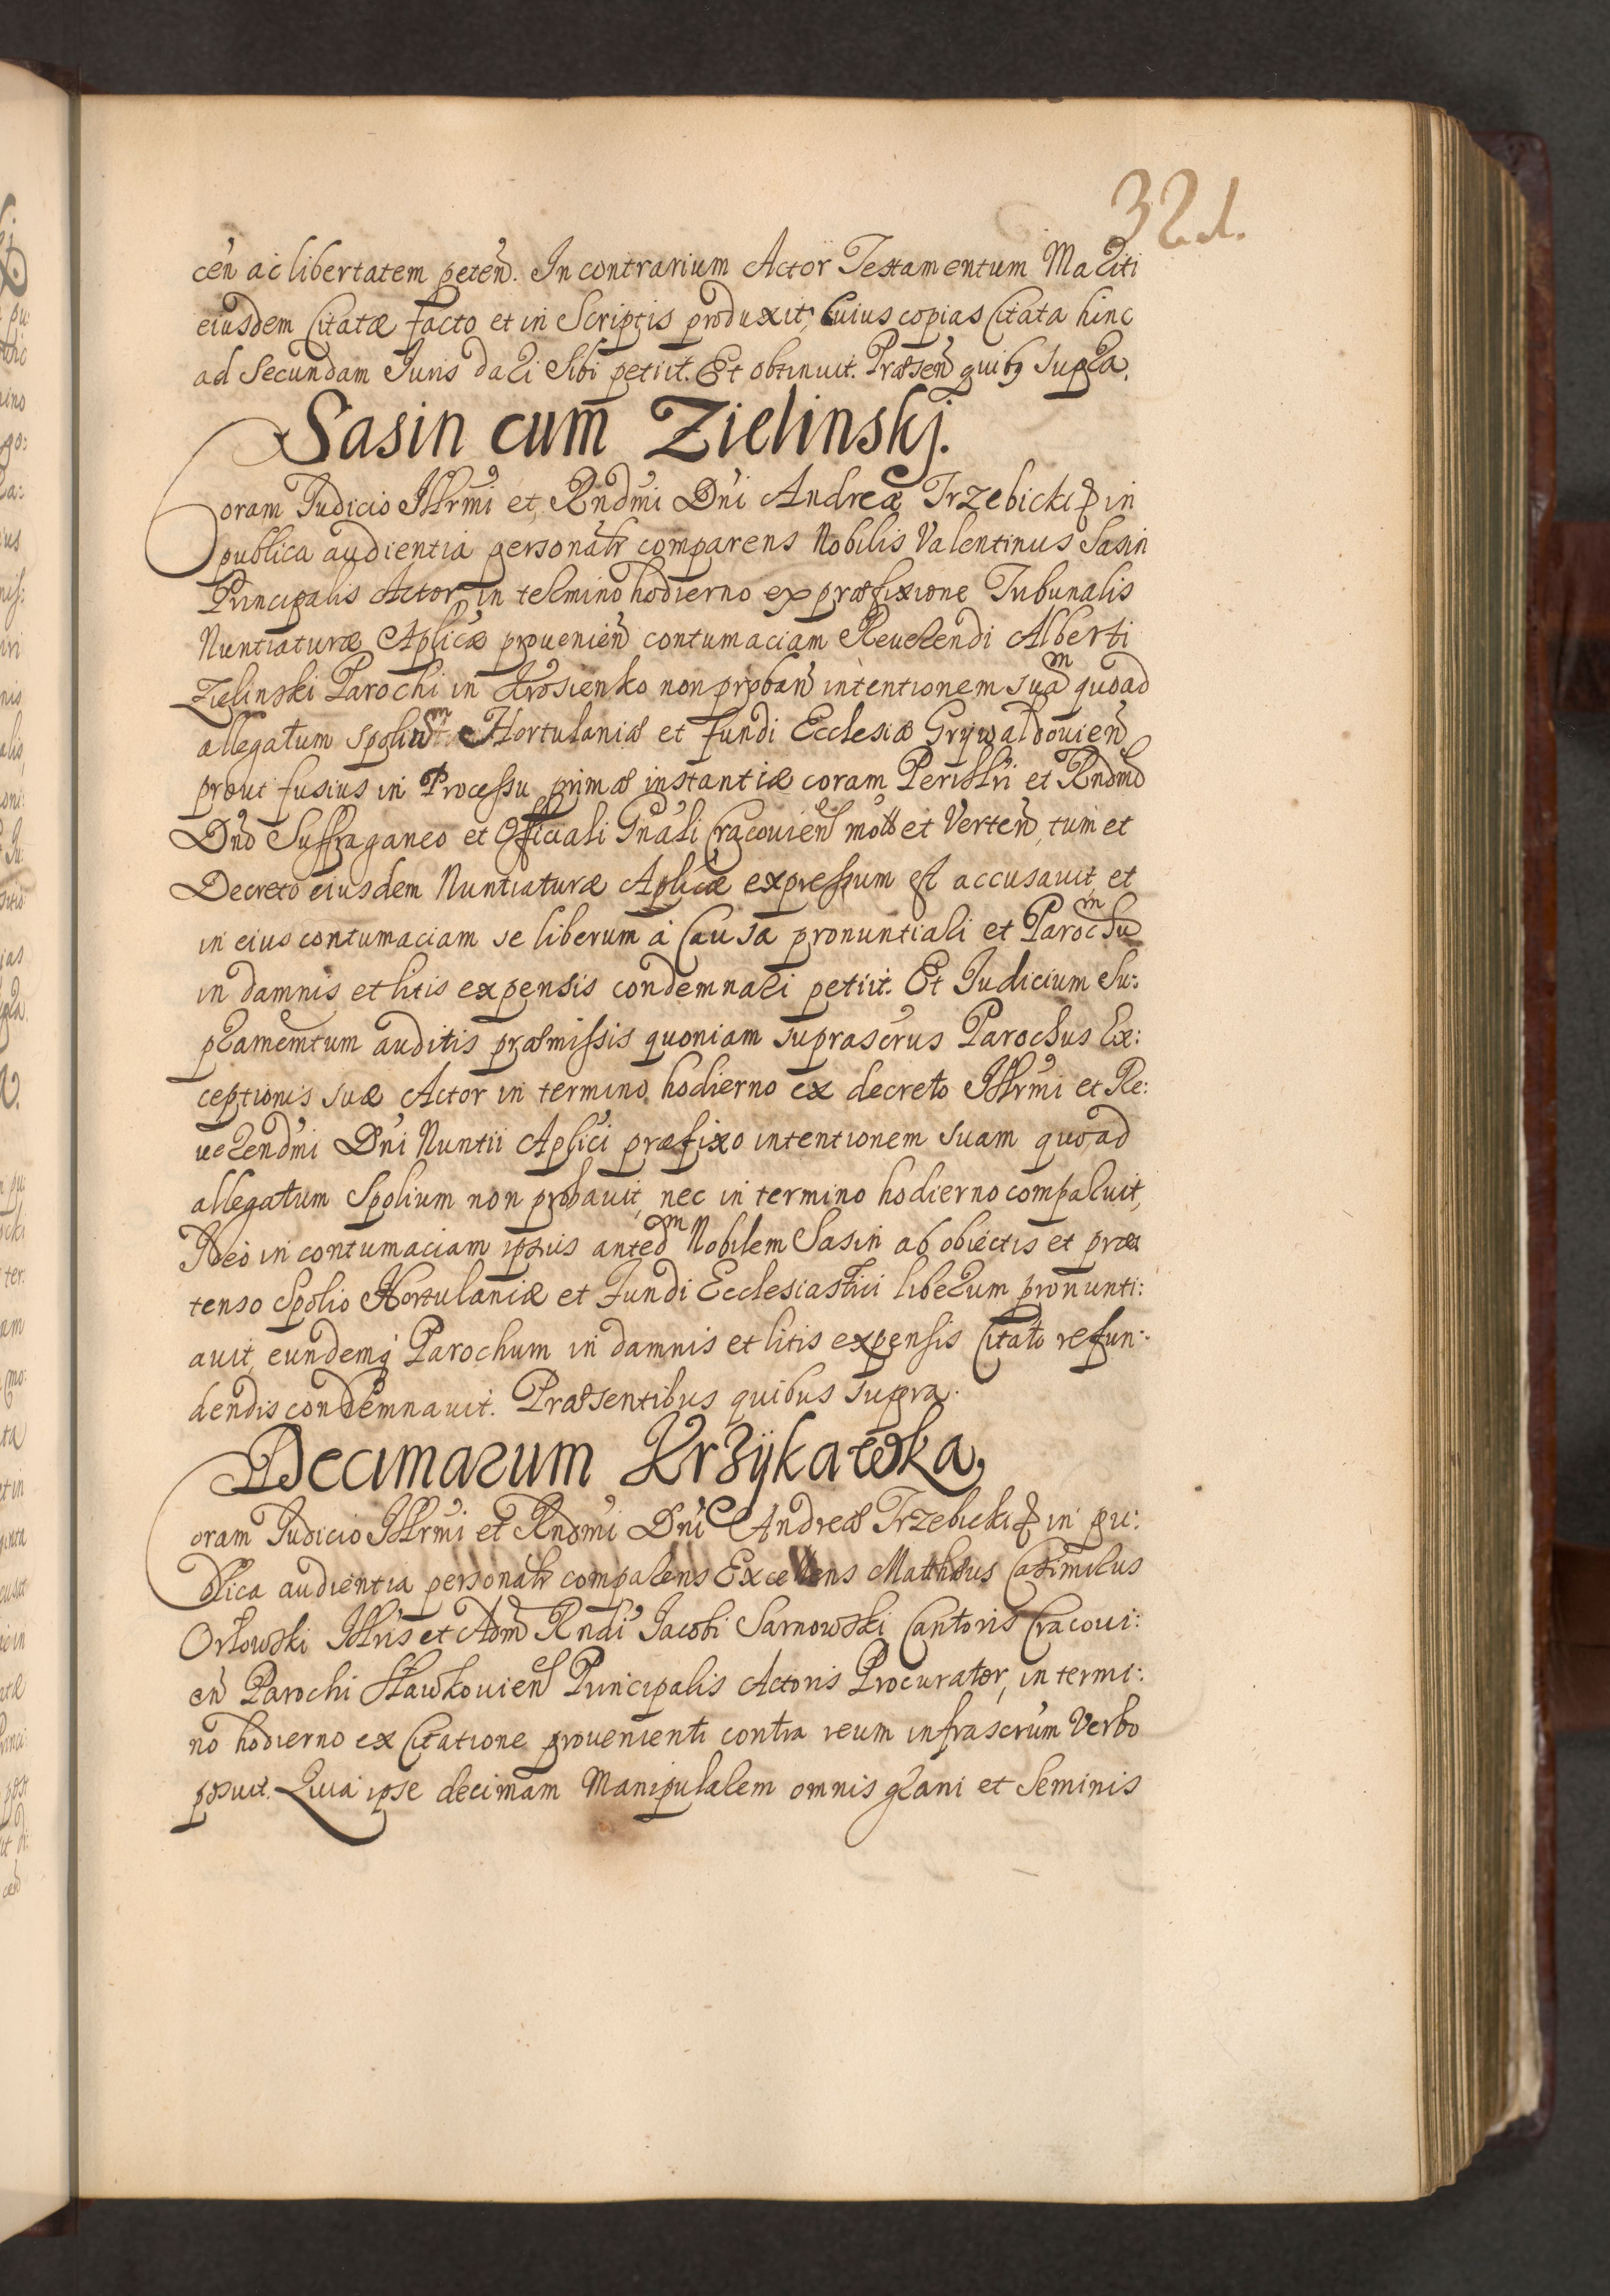 321.
cen̄ ac libertatem peten̄. In contrarium Actor Testamentum Mariti
eiusdem Citatæ facto et in Scriptis produxit, Cuius copias Citata hinc
ad Secundam Iuris dari Sibi petiit. Et obtinuit. Præsen̄ quibq supra.
Sasin cum Zielinskj.
Coram Iudicio Illrmi et Rndmi Dni Andreæ Trzebicki in
publica audientia personalr comparens Nobilis Valentinus Sasin
Principalis Actor in termino hodierno ex præfixione Tribunalis
Nuntiaturæ Aplicæ prouenien̄ contumaciam Reuerendi Alberti
Zielinski Parochi in Krosienko non proban̄ intentionem suam quoad
allegatum spolium Hortulaniæ et fundi Ecclesiæ Grywaldouien̄
prout fusius in Processu primæ instantiæ coram Perillri et Rndmo
Dno Suffraganeo et Officiali Gnali Cracouien̄ mot et Verten̄, tum et
Decreto eiusdem Nuntiaturæ Aplicæ expressum est accusauit, et
in eius contumaciam se liberum à Causa pronuntiari et Parochum
in damnis et litis expensis condemnari petiit. Et Iudicium Su:
pramemtum auditis præmissis quoniam suprascrus Parochus Ex:
ceptionis suæ Actor in termino hodierno ex decreto Illrmi et Re:
uerendmi Dni Nuntii Aplici præfixo intentionem suam quoad
allegatum Spolium non probauit, nec in termino hodierno comparuit,
Ideo in contumaciam ipsius anted Nobilem Sasin ab obiectis et præ
tenso Spolio Hortulaniæ et Fundi Ecclesiastici liberum pronunti:
auit, eundemq Parochum in damnis et litis expensis Citato refun:
dendis condemnauit. Præsentibus quibus supra.
Decimarum Krzÿkawka,
Coram Iudicio Illrmi et Rndmi Dni Andreæ Trzebicki in pu:
blica audientia personalr comparens Excellens Matthæus Casimirus
Orłowski Illris et Adm Rndi Iacobi Sarnowski Cantoris Cracoui:
en̄ Parochi Sławkouien̄ Principalis Actoris Procurator, in termi:
no hodierno ex Citatione prouenienti contra reum infrascrum Verbo
posuit. Quia ipse decimam Manipularem omnis grani et Seminis